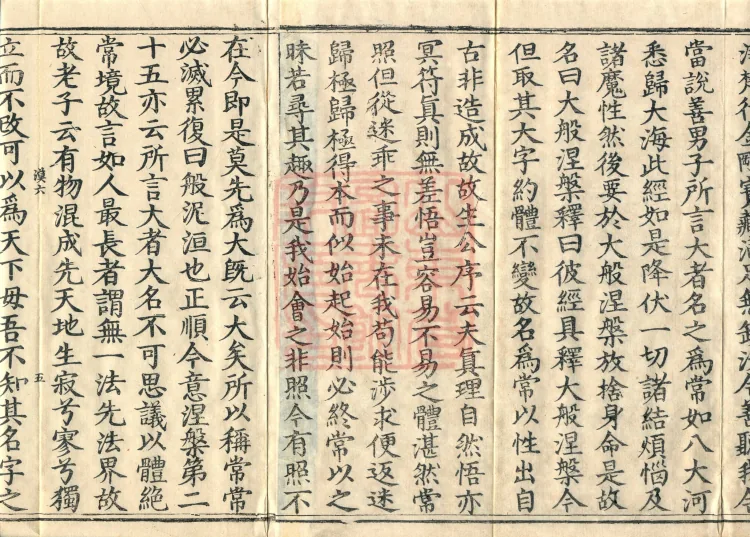 善聽我今
當說善男子所言大者名之為常如八大河
悉歸大海此經如是降伏一切諸結煩惱及
諸魔性然後要於大般涅槃放捨身命是故
名曰大般涅槃釋曰彼經具釋大般涅槃今
但取其大字約體不變故名為常以性出自
古非造成故故生公序云夫眞理自然悟亦
冥符眞則無差悟豈容易不易之體湛然常
照但從迷乖之事未在我苟能涉求便返迷
歸極歸極得本而似始起始則必終常以之
昧若尋其趣乃是我始會之非照今有照不
在今即是莫先為大旣云大矣所以稱常常
必滅累復曰般泥洹也正順今意涅槃第二
十五亦云所言大者大名不可思議以體絕
常境故言如人最長者謂無一法先法界故
故老子云有物混成先天地生寂兮寥兮獨
漠六
五
立而不改可以爲天下母吾不知其名字之